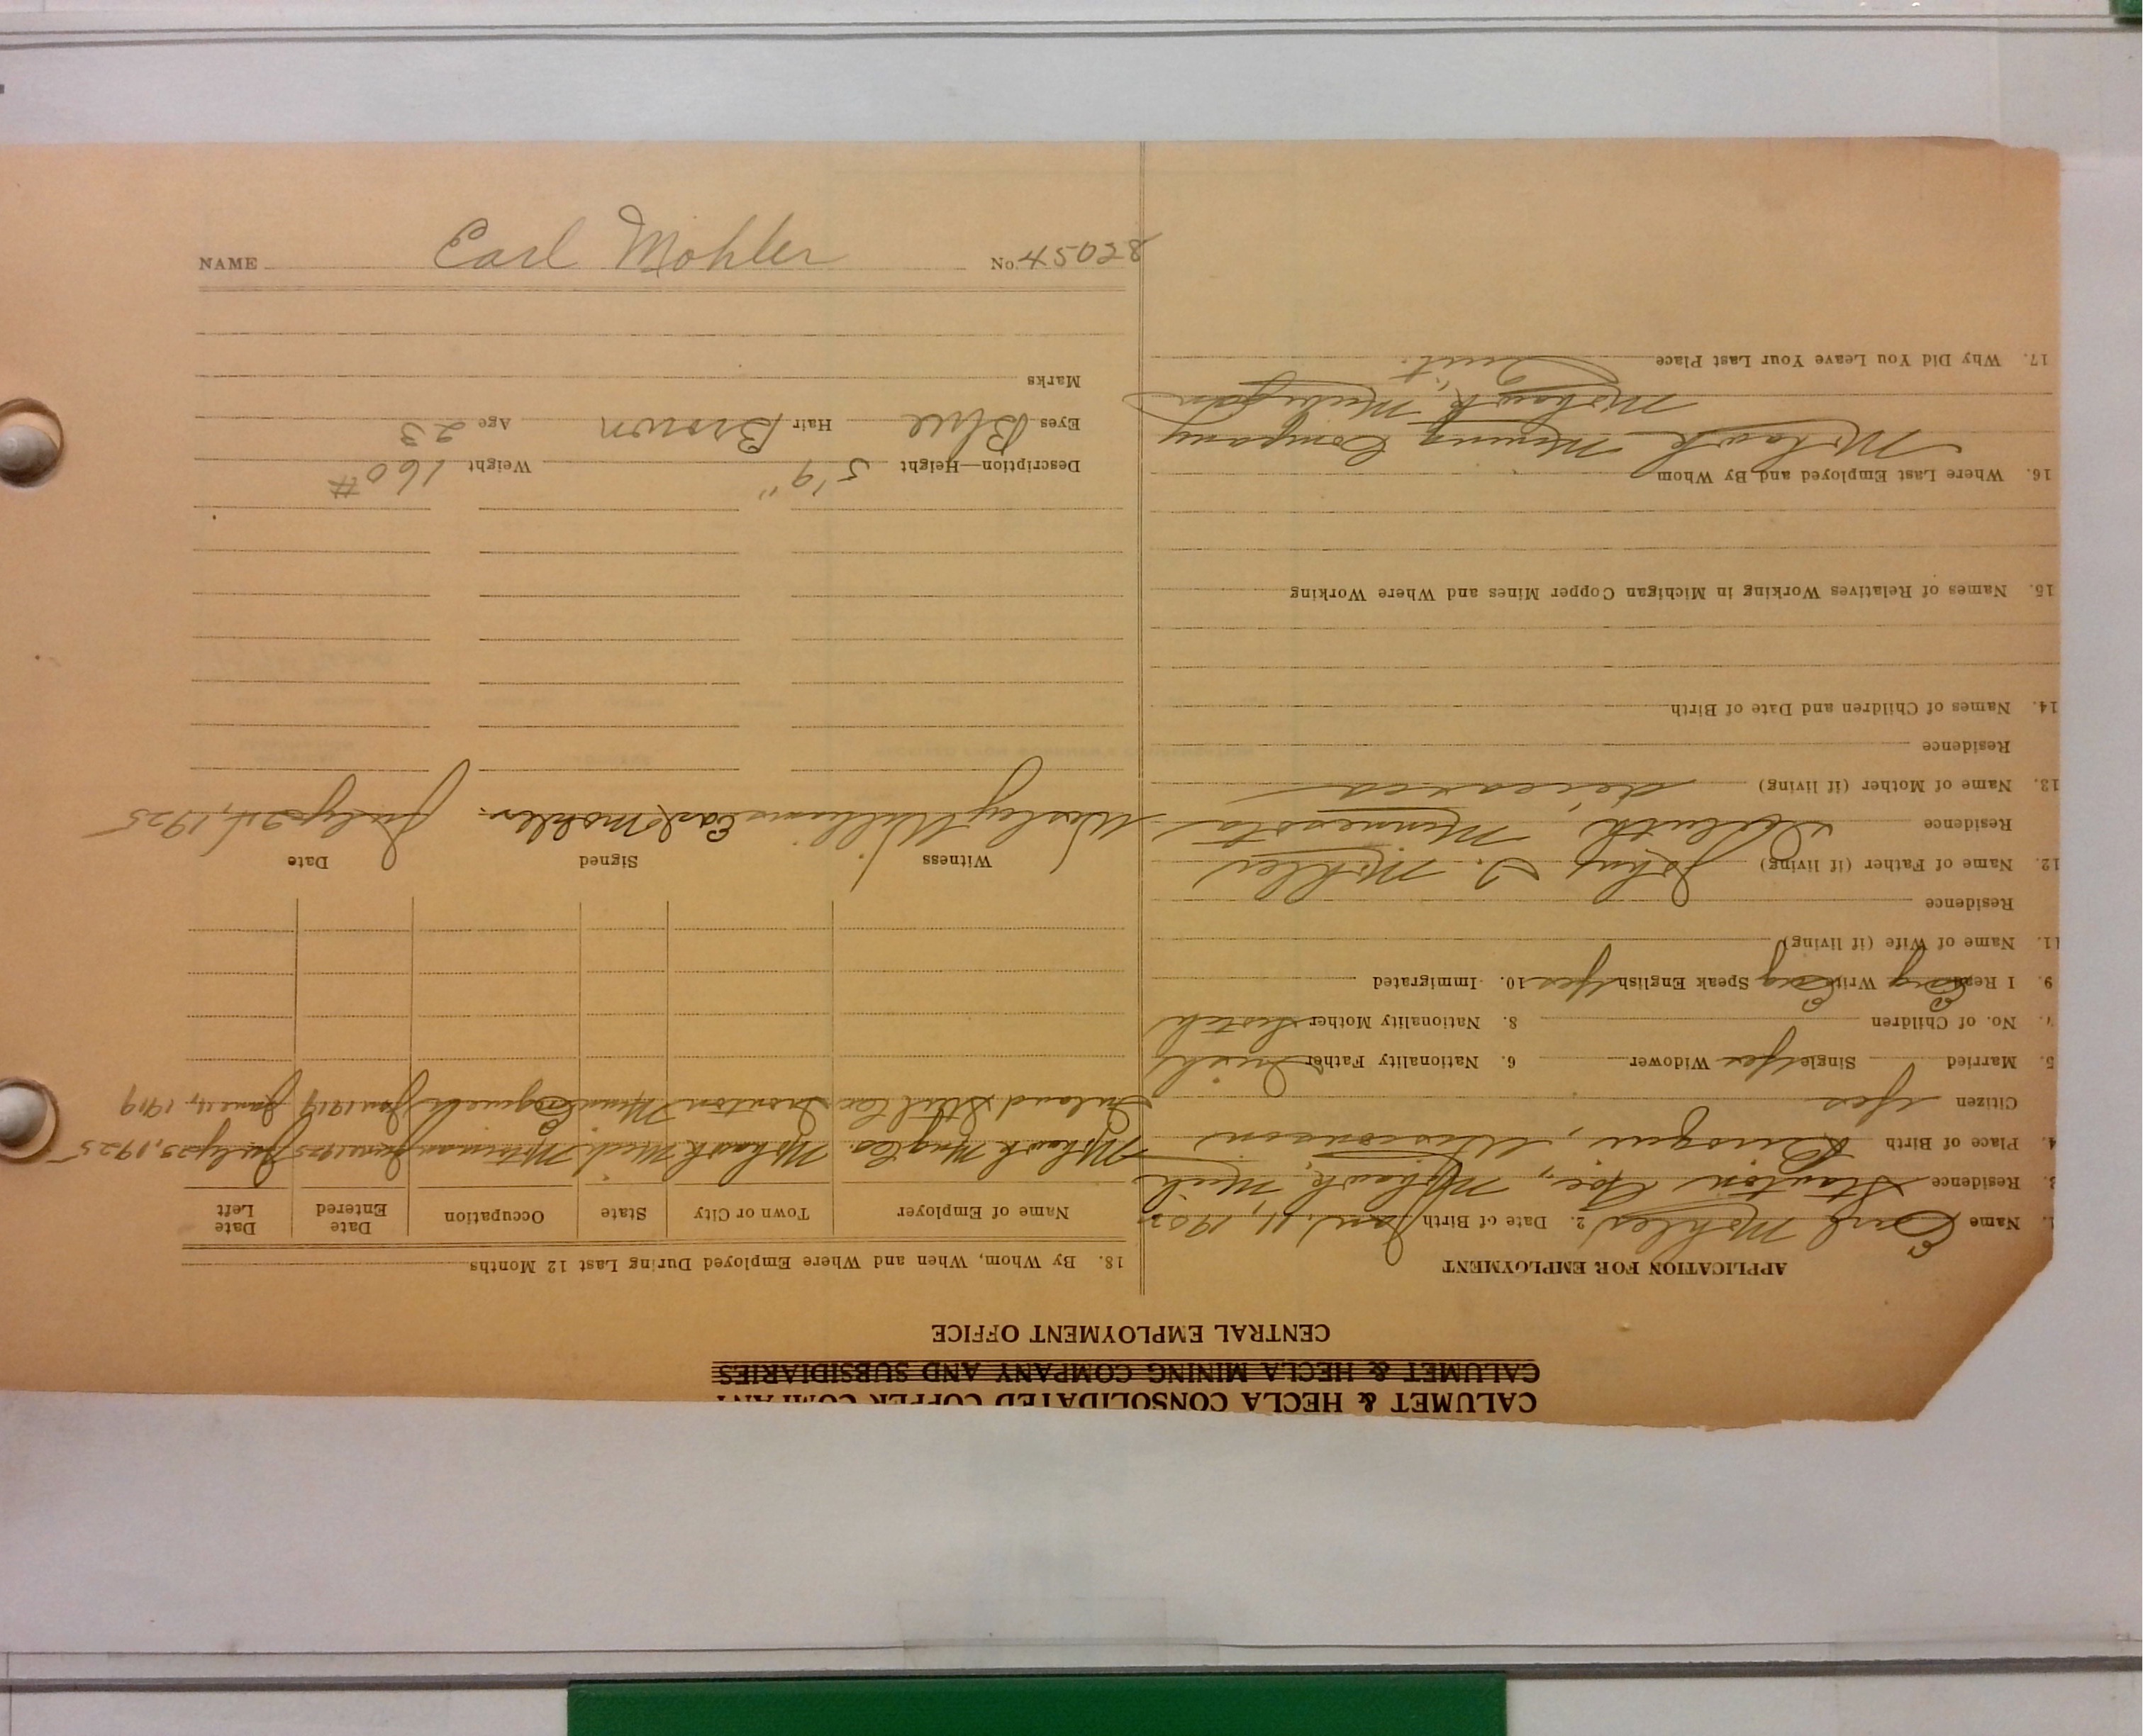 CALUMET & HECLA CONSOLIDATED COPPER COMPANY
CALUMET & HECLA MINING COMPANY AND SUBSIDIARIES
CENTRAL EMPLOYMENT OFFICE
APPLICATION FOR EMPLOYMENT
1. Name Earl Mohler 2. Date of Birth Jan. 11, 1902
3. Residence Stanton Ave., Mohawk, Mich
4. Place of Birth , Wisconsin
Citizen Yes
5. Married Single Yes Widower 6. Nationality Father Irish
7. No. of Children 8. Nationality Mother Scotch
9. I Read Eng Write Eng Speak English Yes 10. Immigrated
11. Name of Wife (if living)
Residence
12. Name of Father (if living) John J. Mohler
Residence Duluth, Minnesota
13. Name of Mother (if living) deceased
Residence
14. Names of Children and Date of Birth
15. Names of Relatives Working in Michigan Copper Mines and Where Working
16. Where Last Employed and By Whom
Mohawk Mining Company
Mohawk, Michigan
17. Why Did You Leave Your Last Place Quit.
18. By Whom, When and Where Employed During Last 12 Months
Name of Employer Town or City State Occupation Date Entered Date Left
Mohawk Mng Co. Mohawk Mich. Motorman June 1925 July 23, 1925
Inland Steel Co. Ironton Minn. Jan 1919 June 4, 1919
Witness Signed Date
Wesley Williams Earl Mohler. July 24, 1925
Description—Height 5'9" Weight 160#
Eyes Blue Hair Brown Age 23
Marks
NAME Earl Mohler No. 45028